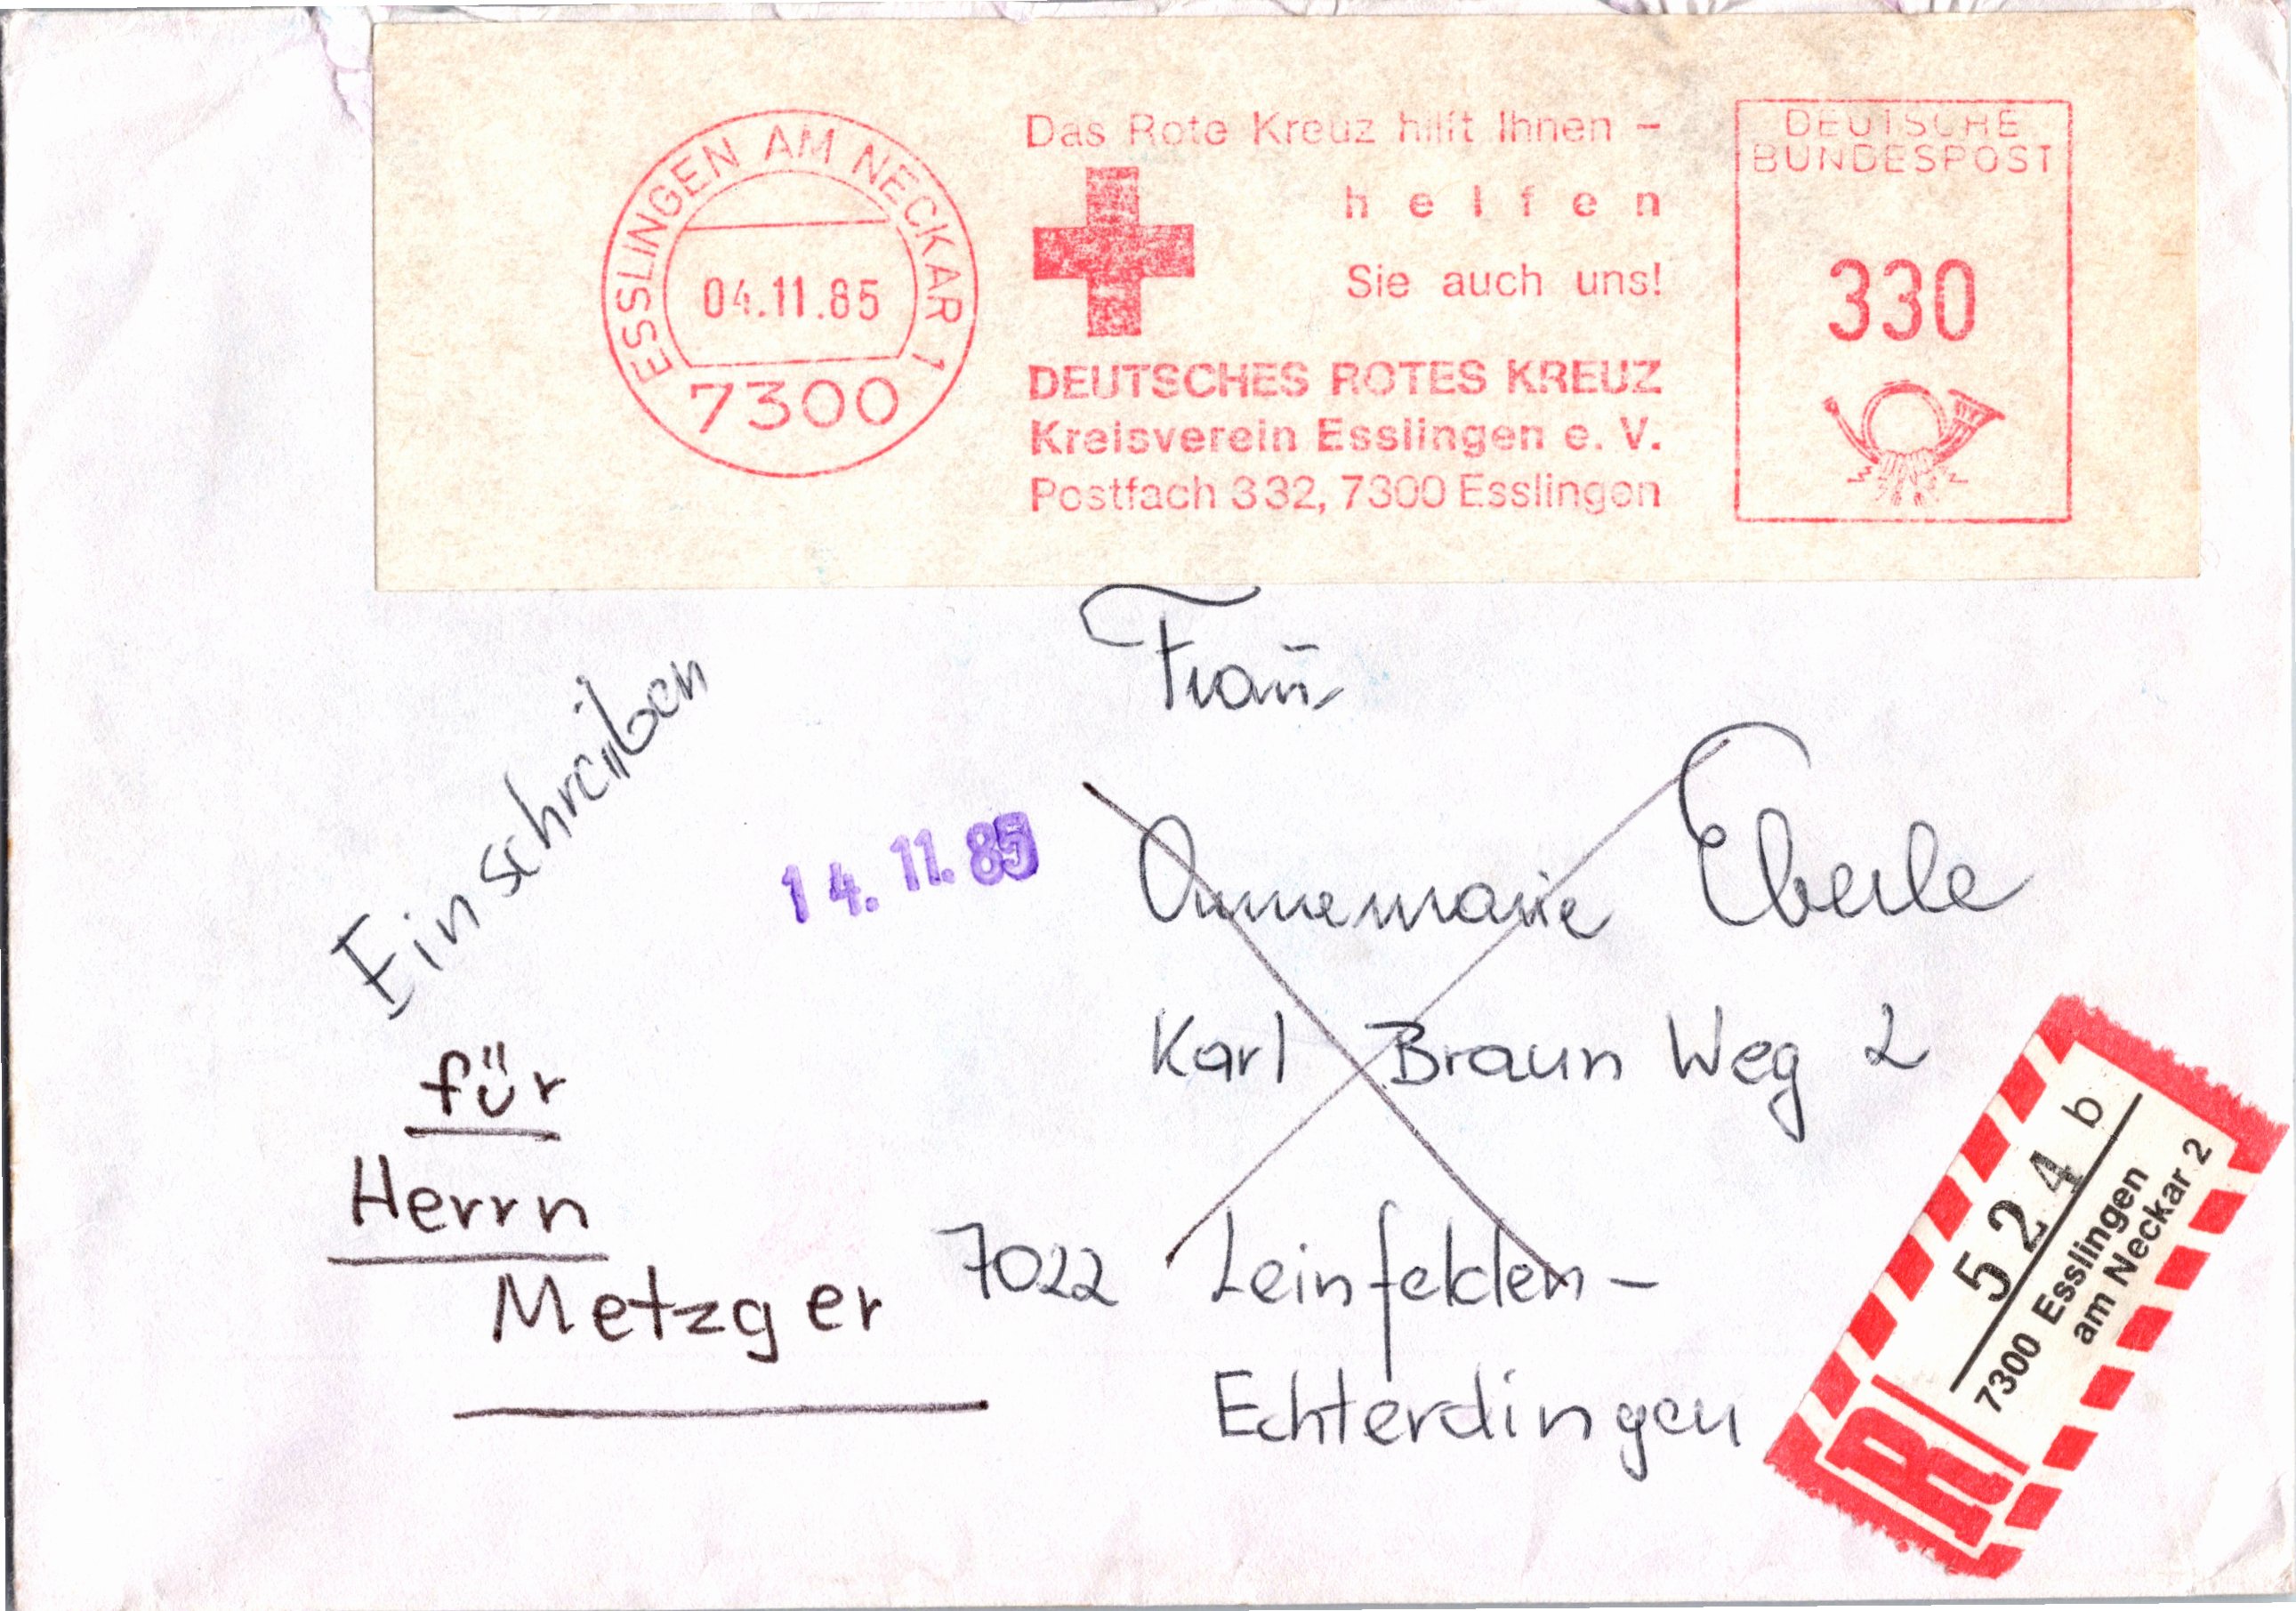 ESSLINGEN AM NECKAR 1
04.11.85
7300
Das Rote Kreuz hilft Ihnen –
helfen
Sie auch uns!
DEUTSCHES ROTES KREUZ
Kreisverein Esslingen e. V.
Postfach 332, 7300 Esslingen
DEUTSCHE
BUNDESPOST
330
Einschreiben
Frau
14.11.85
Annemarie Eberle
Karl Braun Weg 2
7022 Leinfelden-
Echterdingen
für
Herrn
Metzger
R
524 b
7300 Esslingen
am Neckar 2